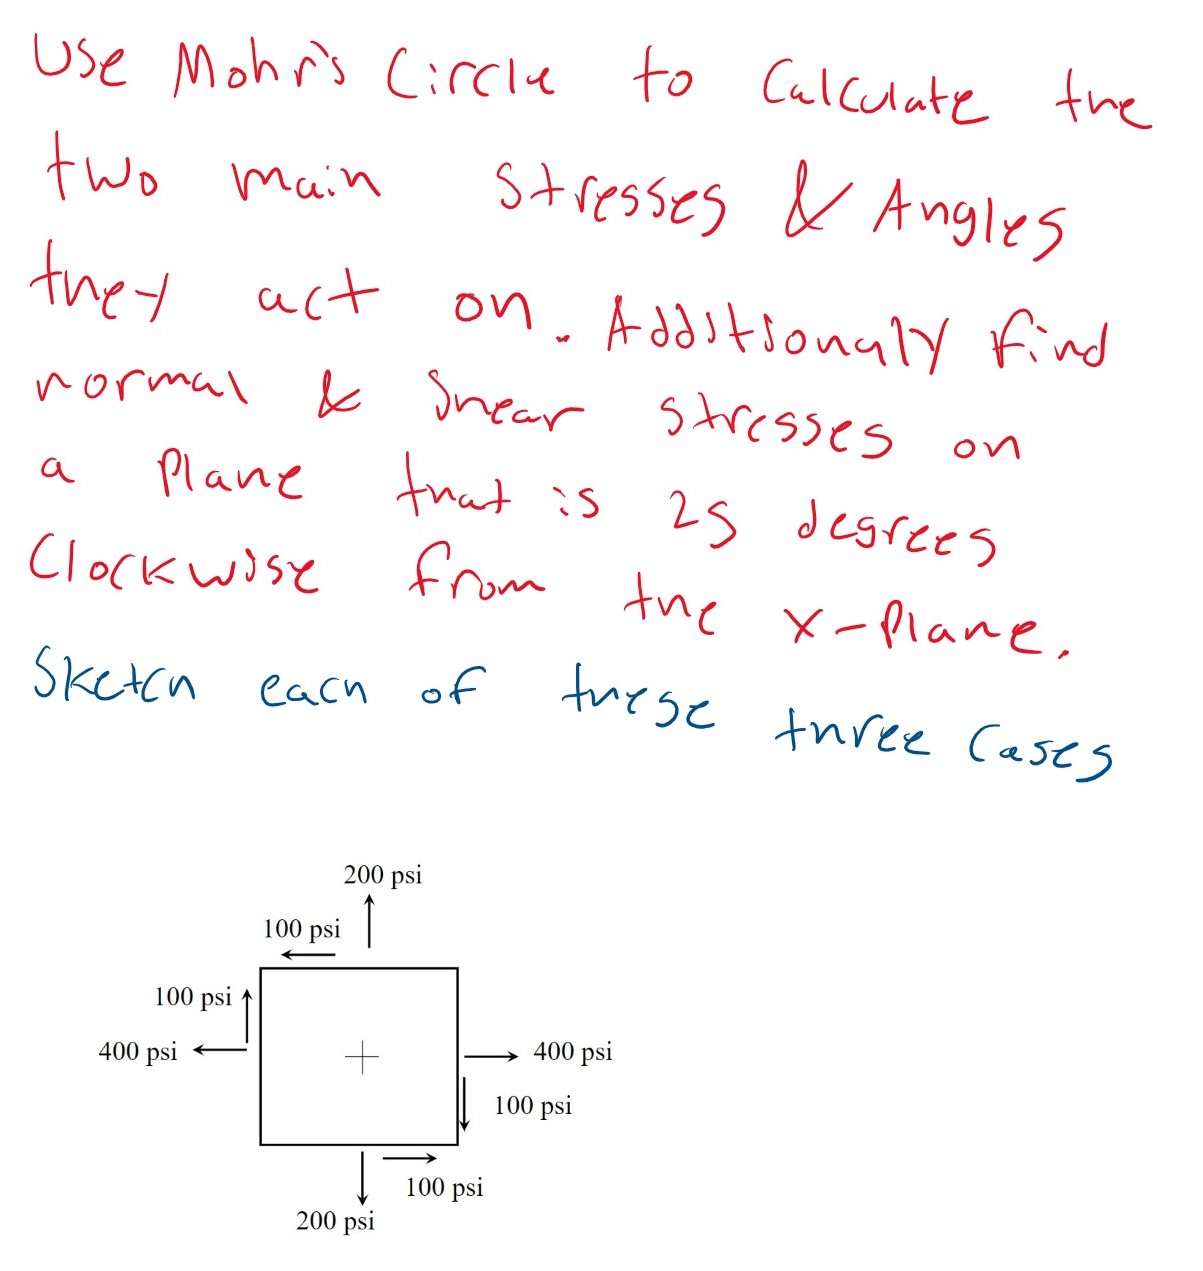 Use Mohr's Circle to Calculate the
two main stresses & Angles
they act on. Additionaly find
normal & Shear stresses on
a Plane that is 25 degrees
Clockwise from the x-Plane.
Sketch each of these three Cases
200 psi
100 psi
100 psi
400 psi
400 psi
100 psi
100 psi
200 psi